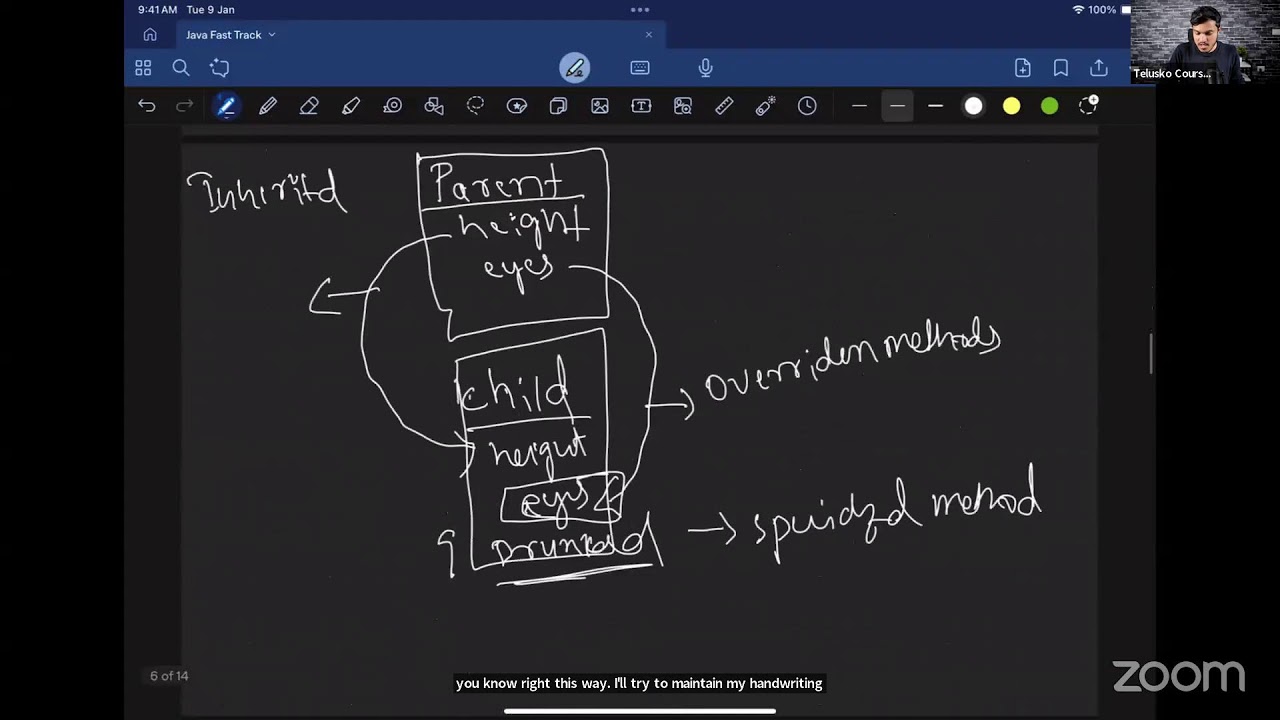 9:41 AM Tue 9 Jan
100%
Java Fast Track
Telusko Cours...
Inheritd
Parent
height
eyes
overriden methods
child
height
eyes
method
6 of 14
you know right this way. I'll try to maintain my handwriting
zoom